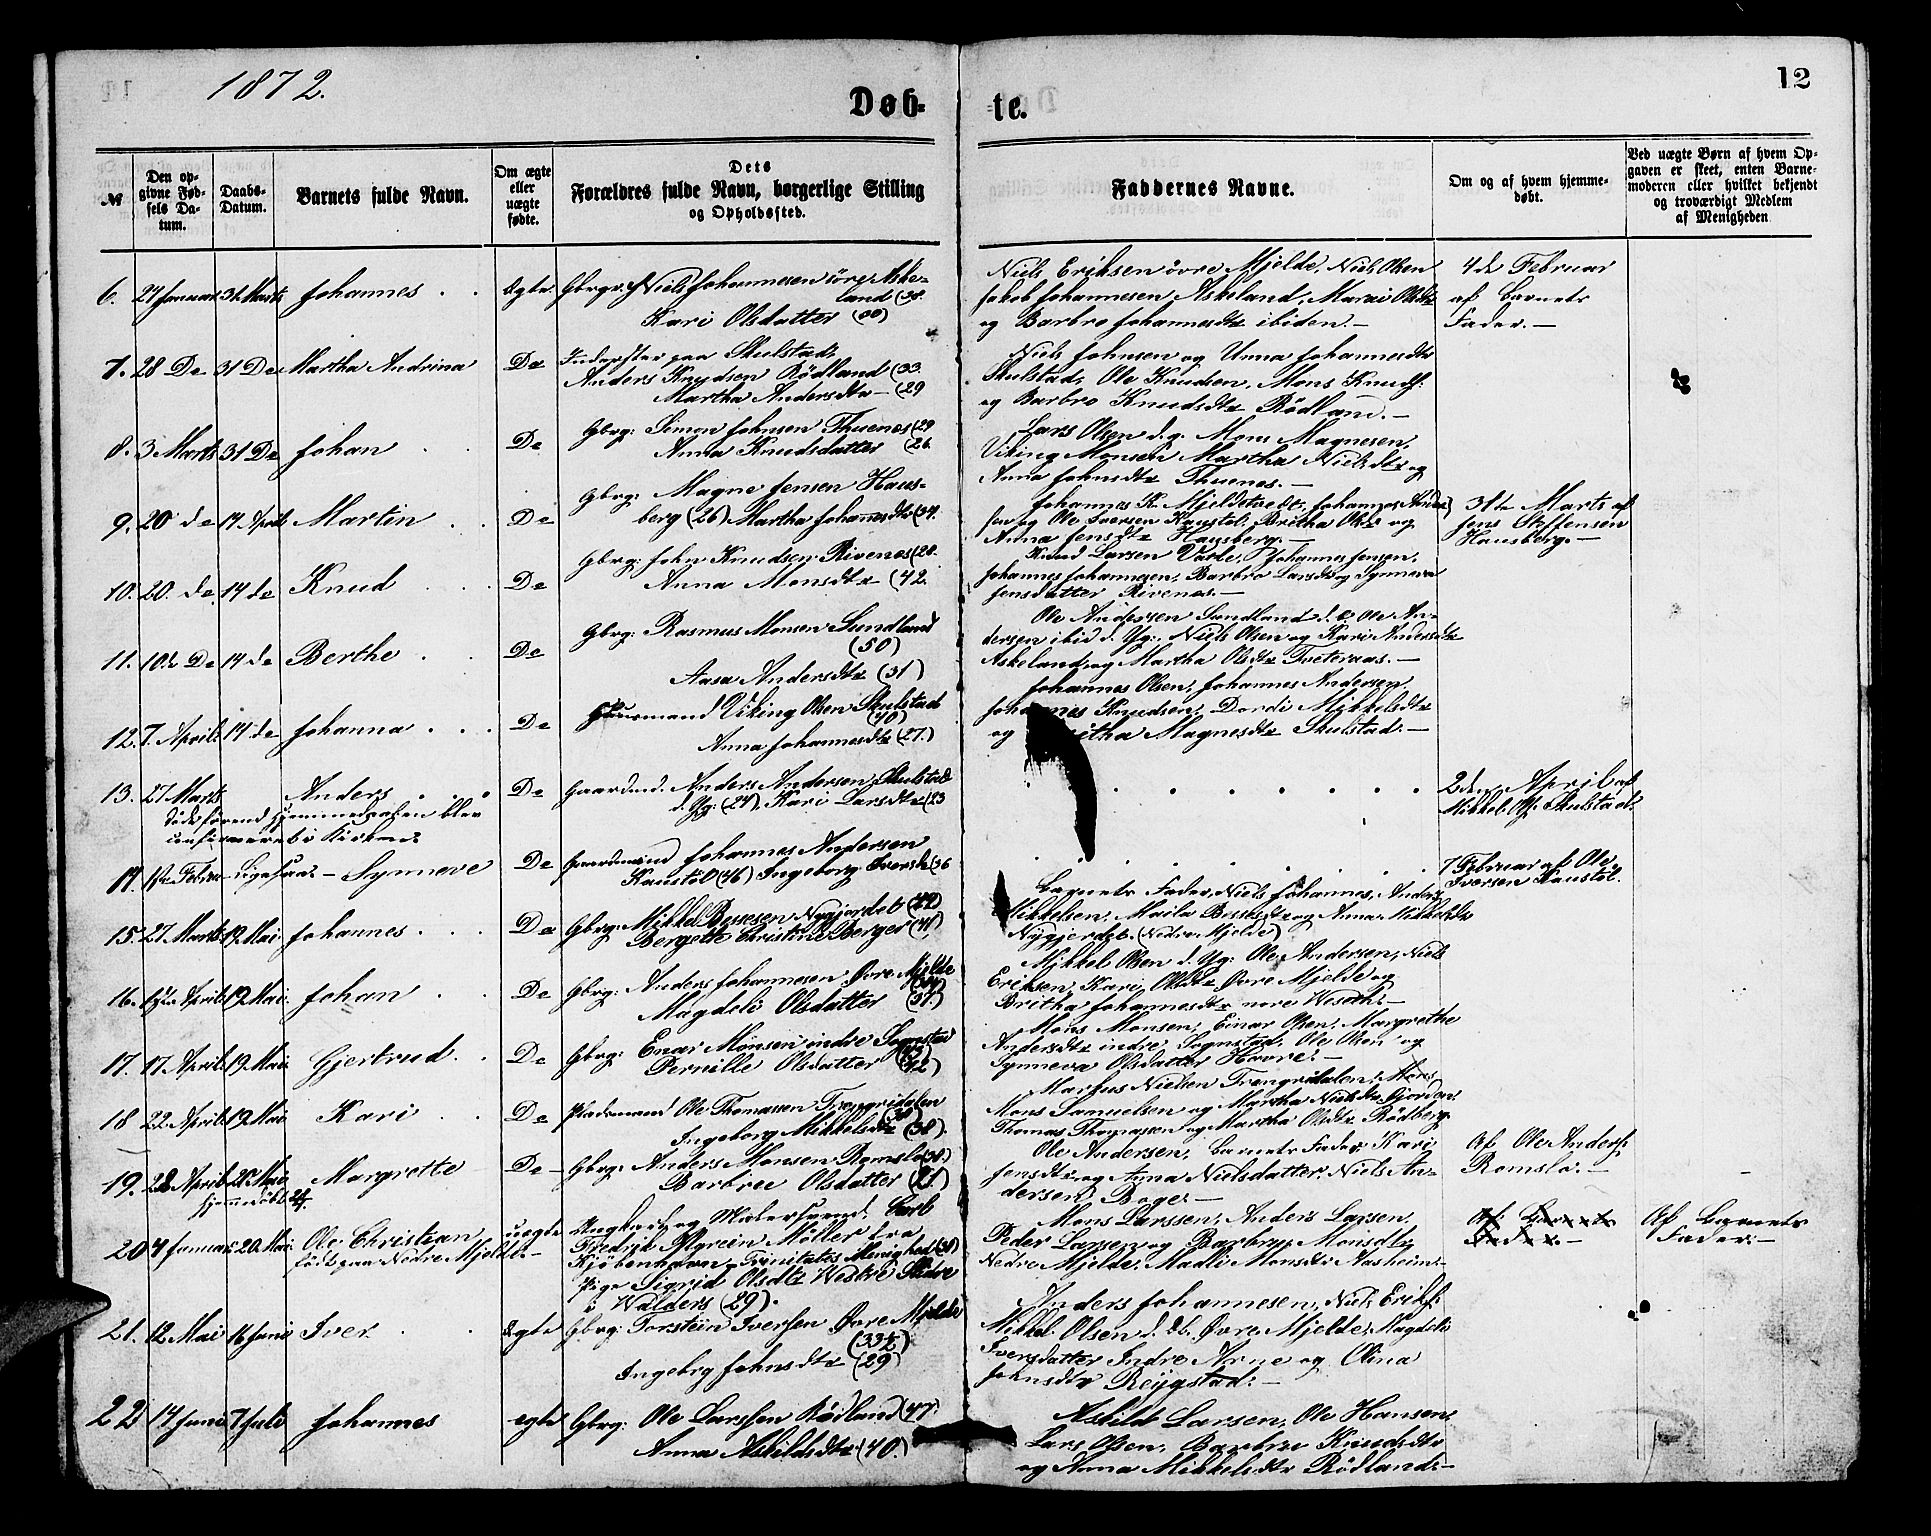 1872.
Døb-
te.
12
№
Den op-
givne Fød-
sels Da-
tum.
Daabs-
Datum.
Barnets fulde Navn.
Om ægte
eller
uægte
fødte.
Dets
Forældres fulde Navn, borgerlige Stilling
og Opholdssted.
Faddernes Navne.
Om og af hvem hjemme-
døbt.
Ved uægte Børn af hvem Op-
gaven er skeet, enten Barne-
moderen eller hvilket bekjendt
og troværdigt Medlem
af Menigheden
6. 24 Januar 31 Marts Johannes Ægte Gbrgr. Niels Johannesen öre Aske-
land (38.
Kari Olsdatter
Niels Eriksen övre Mjelde, Niels Olsen
Jakob Johannesen Askeland, Mari Olsdtr
og Barbro Johannesdtr ibiden.-
4de Februar
af Barnets
Fader.-
7. 28 De 31 De Martha Andrina De Inderster paa Skulstad,
Anders Knudsen Rödland (33.
Martha Andersdtr- (29
Niels Johnsen og Unna Johannesdtr
Skulstad, Ole Knudsen, Mons Knuds:
og Barbro Knudsdtr Rödland.-
8. 3 Marts 31 De Johan De Gbrg: Simon Johnsen Thuenes (29
Anna Knudsdatter (26.
Lars Olsen d.g. Mons Magnesen,
Viking Monsen Martha Nielsdtr og
Anna Johnsdtr Thuenes.-
9. 20 de 14 April Martin De Gbrg: Magne Jensen Haus-
berg (26) Martha Johannesdtr (34.
Johannes K. Mjeldetvedt, Johannes Ander
sen og Ole Iversen Kaustöl, Britha Olsdtr og
Anna Jensdtr Hausberg.-
31te Marts af
Jens Steffensen
Hausberg.-
10. 20. de 14 de Knud De Gbrg: John Knudsen Rivenes (28.
Anna Monsdtr (42.
Knud Larsen Vatle, Johannes Jensen,
Johannes Johannesen, Barbro Larsdtr og Synneva
Jensdatter Rivenes.-
11. 10de De 14 de Berthe De Gbrg: Rasmus Monsen Sundland
(50)
Aasa Andersdtr (31)
Ole Andersen Sundland d.e. Ole An-
dersen ibid d. Yg., Niels Olsen og Kari Andersdtr
Askeland, og Martha Olsdtr Tveteraas.-
12. 7. April 14 de Johanna De Huusmand Viking Olsen Skulstad
(40)
Anna Johannesdtr (27.)
Johannes Olsen, Johannes Andersen,
Johannes Knudsen, Dordi Mikkelsdtr
og Britha Magnesdtr Skulstad.-
13. 27 Marts Anders De Gaardmd. Anders Andersen Skulstad
d. Yg: (24), Kari Larsdtr (23
2den April af
Mikkel Skulstad.
Döde förend Hjemmedaaben blev
confirmeret i Kirken.
14. 1ste Febru- Ligesaa.- Synneve De Gaardmand Johannes Andersen
Kaustöl (46) Ingeborg Iversdtr (36
7 Februar af Ole
Iversen Kaustöl.
15. 27 Marts 19. Mai Johannes De Gbrg: Mikkel Bessesen Nygjerdet (42)
Bergette Christine Berger (41)
Barnets Fader, Niels Johannes, Anders
Mikkelsen, Maila Bessesdtr og Anna Mikkelsdtr
Nygjerdet. (Nedre Mjelde)
16. April 19. Mai Johan De Gbrg: Anders Johannesen Övre Mjelde
Magdeli Olsdatter (37.)
Mikkel Olsen d. Yg: Ole Andersen, Niels
Eriksen, Kari Olsdtr Övre Mjelde og
Britha Johannesdtr nore Weseth.-
17. 17 April 19. Mai Gjertrud. De Gbrg: Enar Monsen indre Songstad
Pernille Olsdatter (42)
Mons Monsen, Einar Olsen, Margrethe
Andersdtr indre Songstad, Ole Olsen og
Synneva Olsdatter Havre.-
18 22 April 19. Mai Kari De Pladsmand Ole Thomassen Trengridalen
(30)
Ingeborg Mikkelsdtr (38).
Marhus Nielsen Trengridalen,
Mons Samuelsen og Martha Nielsdtr Gjorden,
Thomas Thomassen og Martha Olsdtr Rödberg
19. 28 April 20 Mai Margrette De- Gbrg: Anders Monsen Romslo (38.)
Hjemmedöbt
Barbree Olsdatter (21.)
Ole Andersen, Barnets Fader, Kari
Jensdtr og Anna Nielsdatter, Niels An-
dersen Boge.-
Af Ole Anders:
Romslo.-
20 4 Januar 20. Mai Ole Christian uægte Ungkarl og Malersvend, Carl
födt paa Nedre Mjelde.-
Fredrik Möller fra
Kjöbenhavn Trinitates Menighed
Pige Sigrid Olsdtr Westre Slidre
i Walders (29).
Mons Larssen, Anders Larsen,
Peder Larsen og Barbru Monsdtr
Nedre Mjelde, Madli Monsdtr Aasheim.-
Af Barnets
Fader.-
Af Barnets
Fader.-
21. 12 Mai 16 Juni Iver Ægte Gbrg: Torstein Iversen Övre Mjelde
Ingebrg Johnsdtr (29)
Anders Johannesen, Niels Eriks:
Mikkel Olsen d. Æl. Övre Mjelde, Magdeli
Iversdatter Indre Arne og Olina
Johnsdtr Reigstad.-
22 14 Juni 7 Juli Johannes egte Gbrg: Ole Larssen Rödland (47.
Anna Askildsdtr (40.)
Askild Larsen, Ole Hansen,
Lars Olsen, Barbru Knudsdtr
og Anna Mikkelsdtr Rödland.-